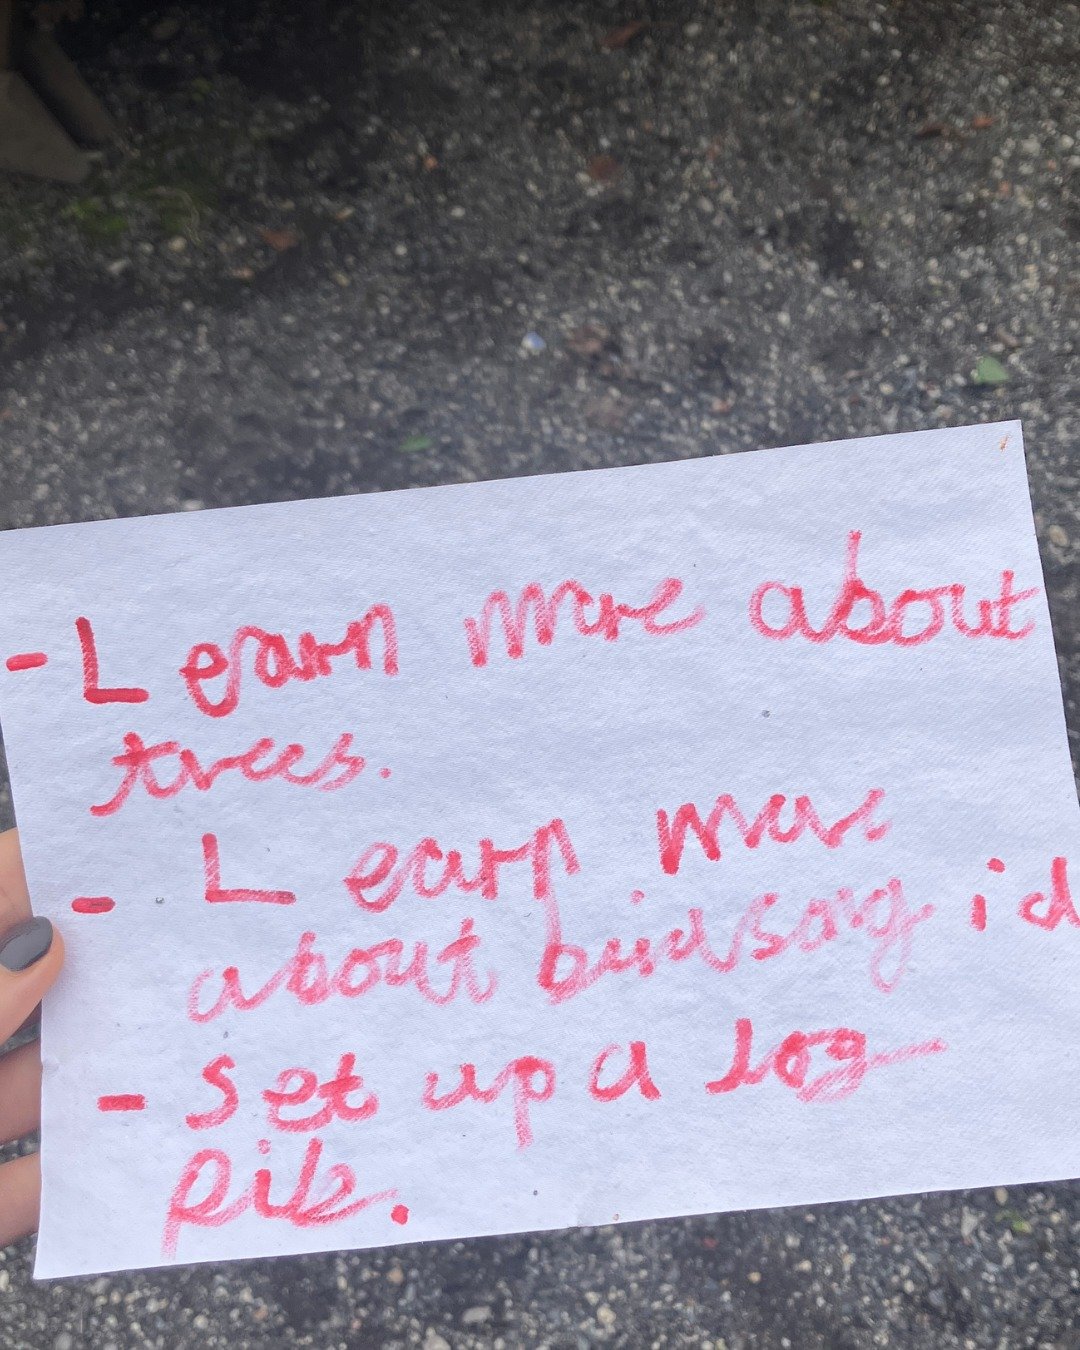 - Learn more about
trees.
- Learn more
about birdsong id
- Set up a log
pile.